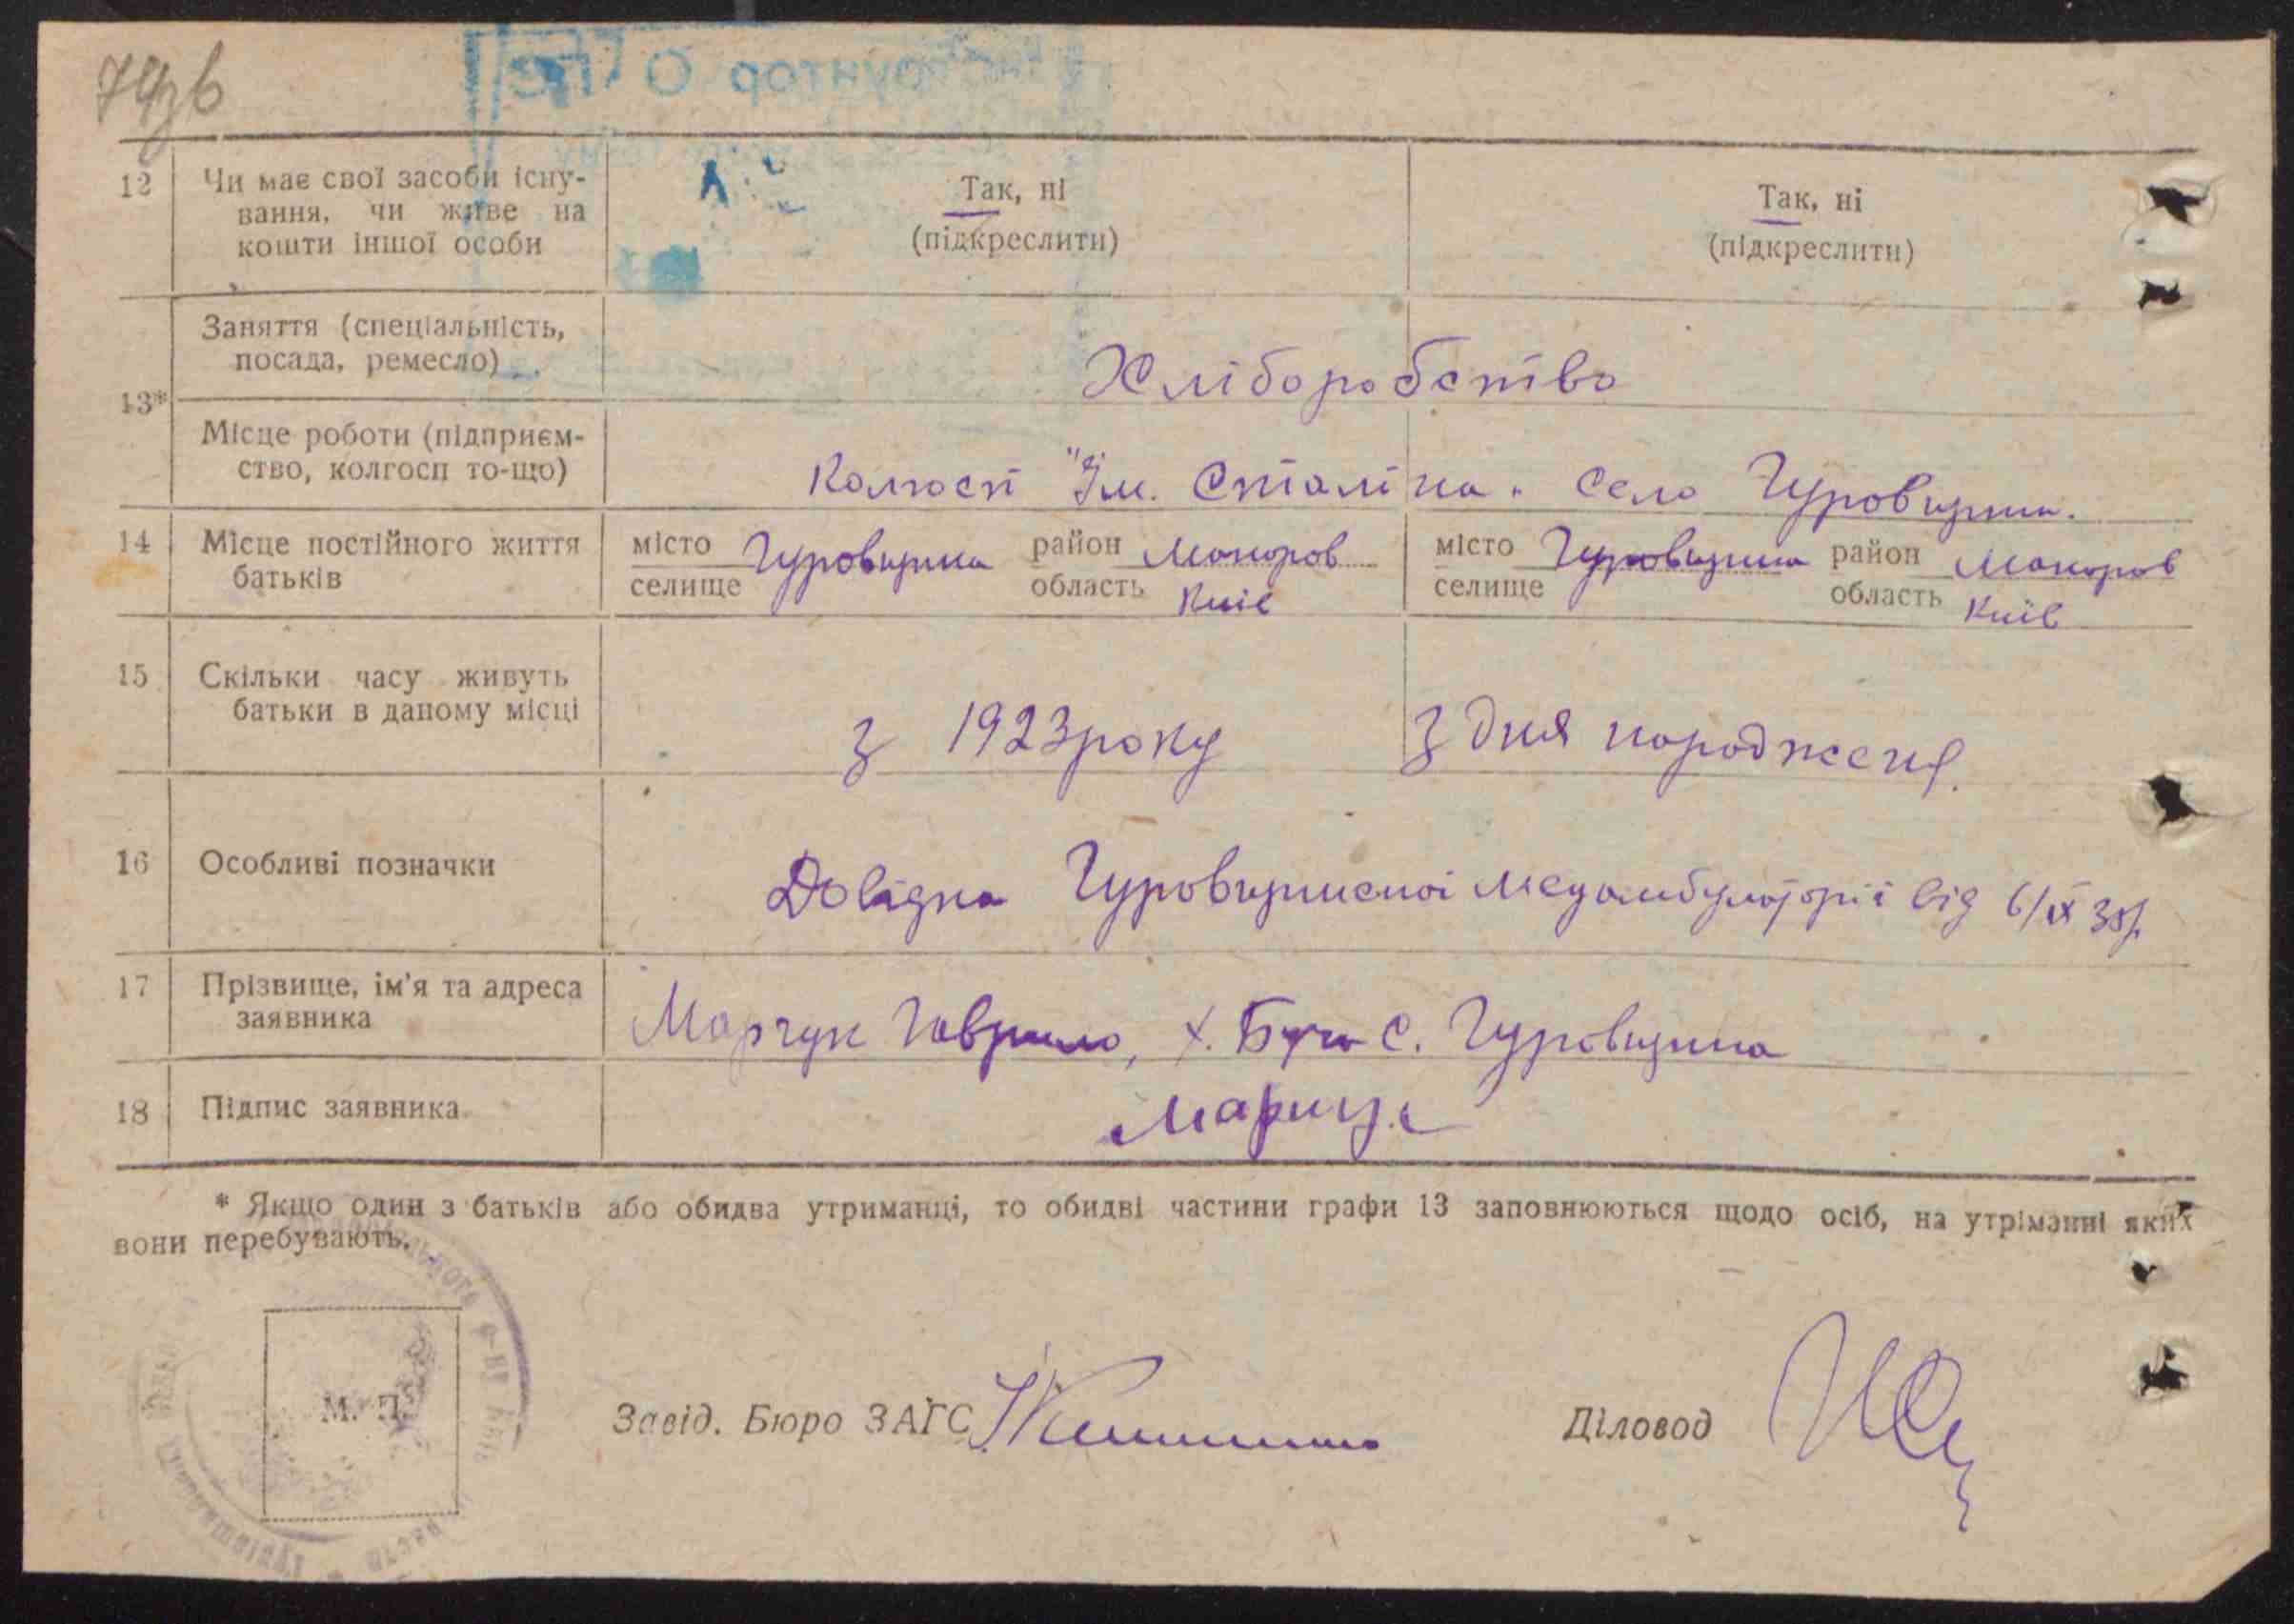 74зв
12 Чи має свої засоби існу-
вання, чи живе на
кошти іншої особи
Так, ні
(підкреслити)
Так, ні
(підкреслити)
13*
Заняття (спеціальність,
посада, ремесло)
Хліборобство
Місце роботи (підприєм-
ство, колгосп то-що)
Колгосп "Ім. Сталіна. село Гуровщина.
14 Місце постійного життя
батьків
місто селище Гуровщина район Макаров
область Київ
місто селище Гуровщина район Макаров
область Київ
15 Скільки часу живуть
батьки в даному місці
З 1923 року
З дня народженя.
16 Особливі позначки
Довідка Гуровщинської медамбулаторії від 6/IX 38р.
17 Прізвище, ім'я та адреса
заявника
Марчук Гаврило, х. Буча с. Гуровщина
18 Підпис заявника
* Якщо один з батьків або обидва утриманці, то обидві частини графи 13 заповнюються щодо осіб, на утріманні яких
вони перебувають.
М. П.
Завід. Бюро ЗАГС
Діловод